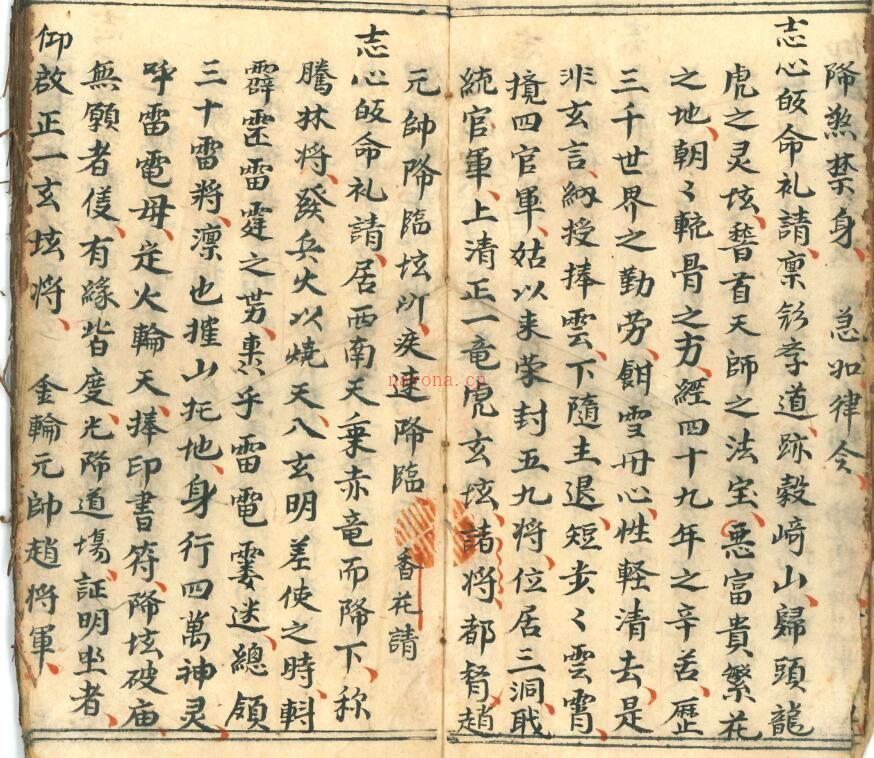 降煞禁身、急如律令、
志心皈命礼請、禀彩孝道、跡穀崎山、歸頭龍
虎之灵坛、瞽首天師之法宝、悪富貴繁花
之地、朝〻輗骨之方、經四十九年之辛苦、歷
三千世界之勤劳、餌雪丹心、性軽清去、是
非玄言、授捧雲、下隨主退、短歩〻雲霄、
境四官軍、姑以来荣封五九将、位居三洞戢
統官軍、上清正一竜虎玄坛、諸将、都督趙
元帥降臨坛所、疾速降臨 香花請
志心皈命礼請、居西南天乗赤竜而降下、称
騰林将、發兵火以燒天、八玄明差使之時、斟
霹雳雷霆之势、乎雷電霎迷、總領
三十雷將、凛也摧山圫地、身行四萬神灵、
呼雷電毋、走火輪天、捧印書符、降坛破庙、
無願者侵、有緣皆度、光降道塲、証明坐者、
仰啟正一玄坛将、金輪元帥趙将軍、
nayona.cn